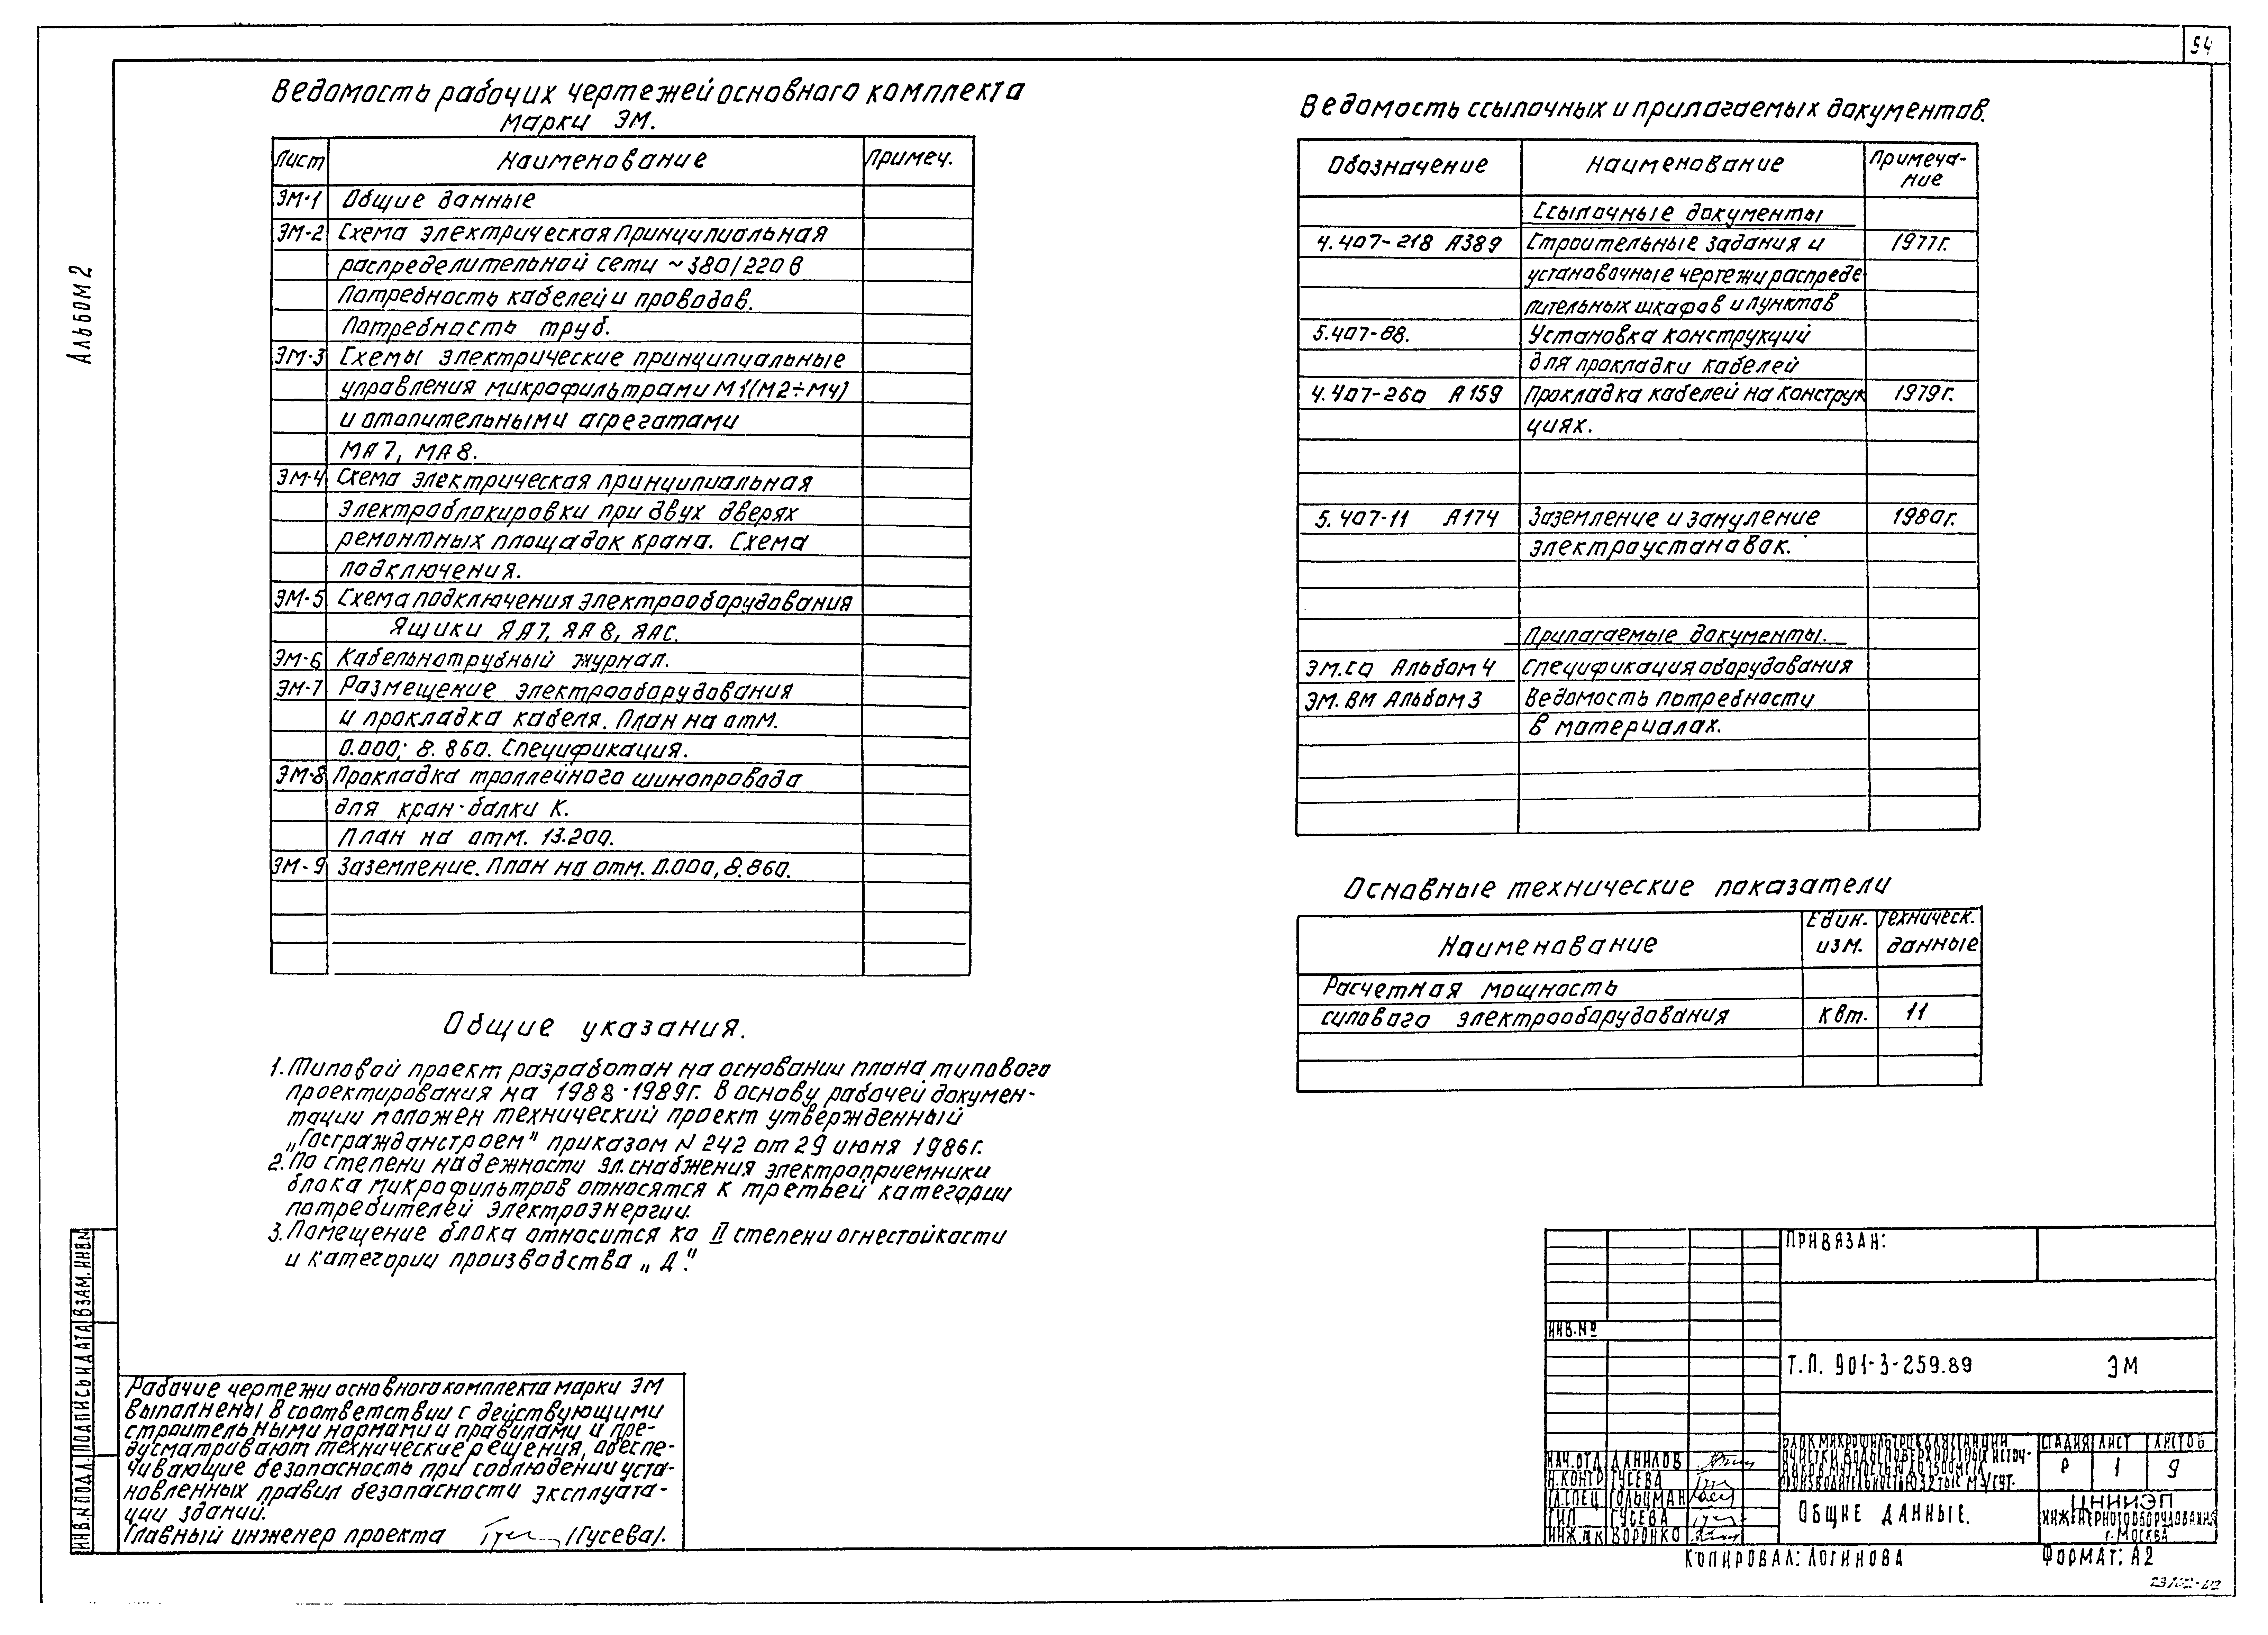 54
Альбом 2
Ведомость рабочих чертежей основного комплекта
марки ЭМ.
Лист Наименование Примеч.
ЭМ-1 Общие данные
ЭМ-2 Схема электрическая принципиальная
распределительной сети ~380/220 В
Потребность кабелей и проводов.
Потребность труб.
ЭМ-3 Схемы электрические принципиальные
управления микрофильтрами М1(М2÷М4)
и отопительными агрегатами
МА7, МА8.
ЭМ-4 Схема электрическая принципиальная
электроблокировки при двух дверях
ремонтных площадок крана. Схема
подключения.
ЭМ-5 Схема подключения электрооборудования
Ящики ЯА7, ЯА8, ЯАС.
ЭМ-6 Кабельнотрубный журнал.
ЭМ-7 Размещение электрооборудования
и прокладка кабеля. План на отм.
0.000; 8.860. Спецификация.
ЭМ-8 Прокладка троллейного шинопровода
для кран-балки К.
План на отм. 13.200.
ЭМ-9 Заземление. План на отм. 0.000, 8.860.
Общие указания.
1. Типовой проект разработан на основании плана типового
проектирования на 1988-1989г. В основу рабочей докумен-
тации положен технический проект утвержденный
„Госгражданстроем" приказом N 242 от 29 июня 1986г.
2. По степени надежности эл.снабжения электроприемники
блока микрофильтров относятся к третьей категории
потребителей электроэнергии.
3. Помещение блока относится ко II степени огнестойкости
и категории производства „Д".
Ведомость ссылочных и прилагаемых документов.
Обозначение Наименование Примеча-
ние
Ссылочные документы
4.407-218 А389 Строительные задания и 1977г.
установочные чертежи распреде
лительных шкафов и пунктов
5.407-88. Установка конструкций
для прокладки кабелей
4.407-260 А159 Прокладка кабелей на конструк 1979г.
циях.
5.407-11 А174 Заземление и зануление 1980г.
электроустановок.
Прилагаемые документы.
ЭМ.СО Альбом 4 Спецификация оборудования
ЭМ.ВМ Альбом 3 Ведомость потребности
в материалах.
Основные технические показатели
Наименование Един. изм. Техническ. данные
Расчетная мощность
силового электрооборудования квт. 11
Рабочие чертежи основного комплекта марки ЭМ
выполнены в соответствии с действующими
строительными нормами и правилами и пре-
дусматривают технические решения, обеспе-
чивающие безопасность при соблюдении уста-
новленных правил безопасности эксплуата-
ции зданий.
Главный инженер проекта /Гусева/.
ИНВ.N ПОДЛ. ПОДПИСЬ И ДАТА ВЗАМ.ИНВ.N
ПРИВЯЗАН:
ИНВ.№
Т.П. 901-3-259.89 ЭМ
НАЧ.ОТД ДАНИЛОВ
Н.КОНТР ГУСЕВА
ГЛ.СПЕЦ ГОЛЬЦМАН
ГИП ГУСЕВА
ИНЖ.IIК ВОРОНКО
БЛОК МИКРОФИЛЬТРОВ ДЛЯ СТАНЦИИ
ОЧИСТКИ ВОДЫ ПОВЕРХНОСТНЫХ ИСТОЧ-
НИКОВ МУТНОСТЬЮ ДО 1500МГ/Л
ПРОИЗВОДИТЕЛЬНОСТЬЮ 32 ТЫС М3/СУТ.
СТАДИЯ ЛИСТ ЛИСТОВ
Р 1 9
ОБЩИЕ ДАННЫЕ.
ЦНИИЭП
ИНЖЕНЕРНОГО ОБОРУДОВАНИЯ
г.МОСКВА
КОПИРОВАЛ: ЛОГИНОВА ФОРМАТ: А2